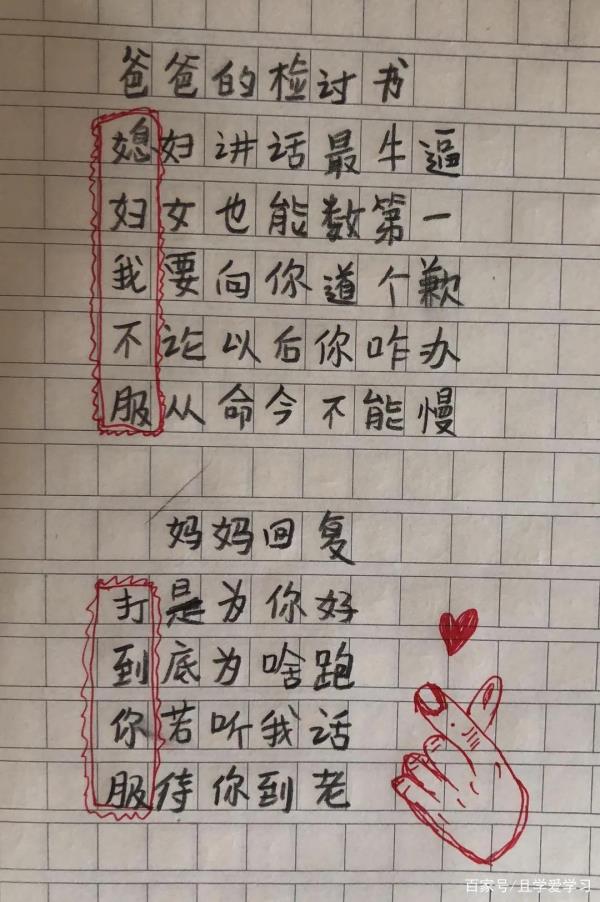 爸爸的检讨书
媳妇讲话最牛逼
妇女也能数第一
我要向你道个歉
不论以后你咋办
服从命令不能慢
妈妈回复
打是为你好
到底为啥跑
你若听我话
服待你到老
百家号/且学爱学习